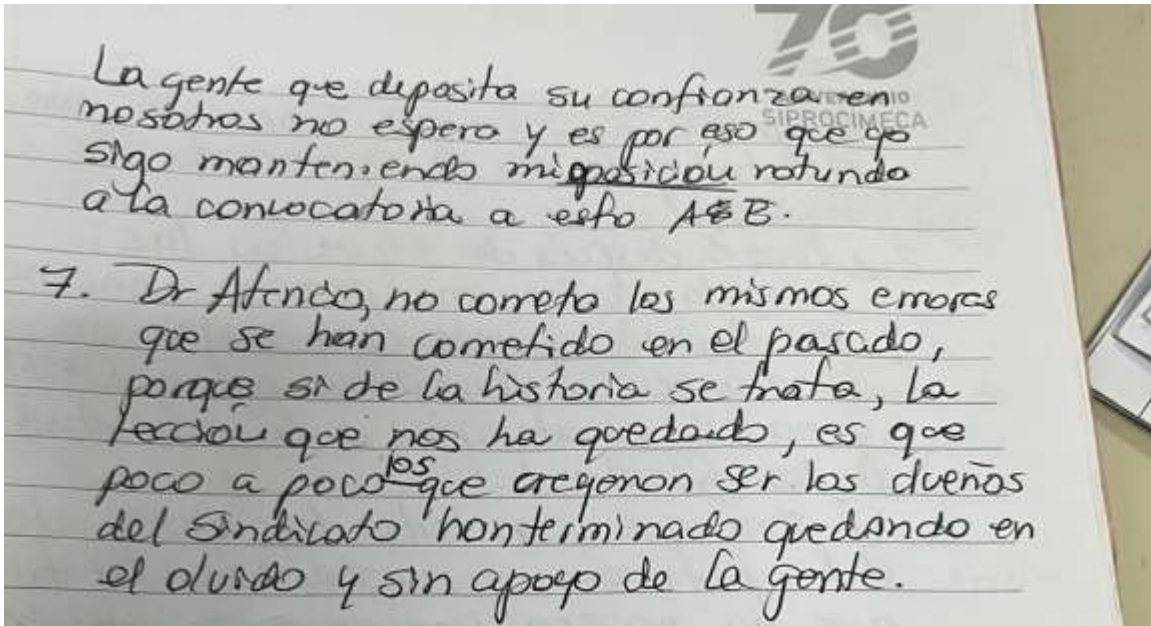 70
SIPROCIMECA
La gente que deposita su confianza en
nosotros no espera y es por eso que yo
sigo manteniendo mi posición rotunda
a la convocatoria a esto
7. Dr no cometa los mismos errores
que se han cometido en el pasado,
porque si de la historia se trata, la
lección que nos ha quedado, es que
poco a poco los que creyeron ser los dueños
del sindicato han terminado quedando en
el olvido y sin apoyo de la gente.